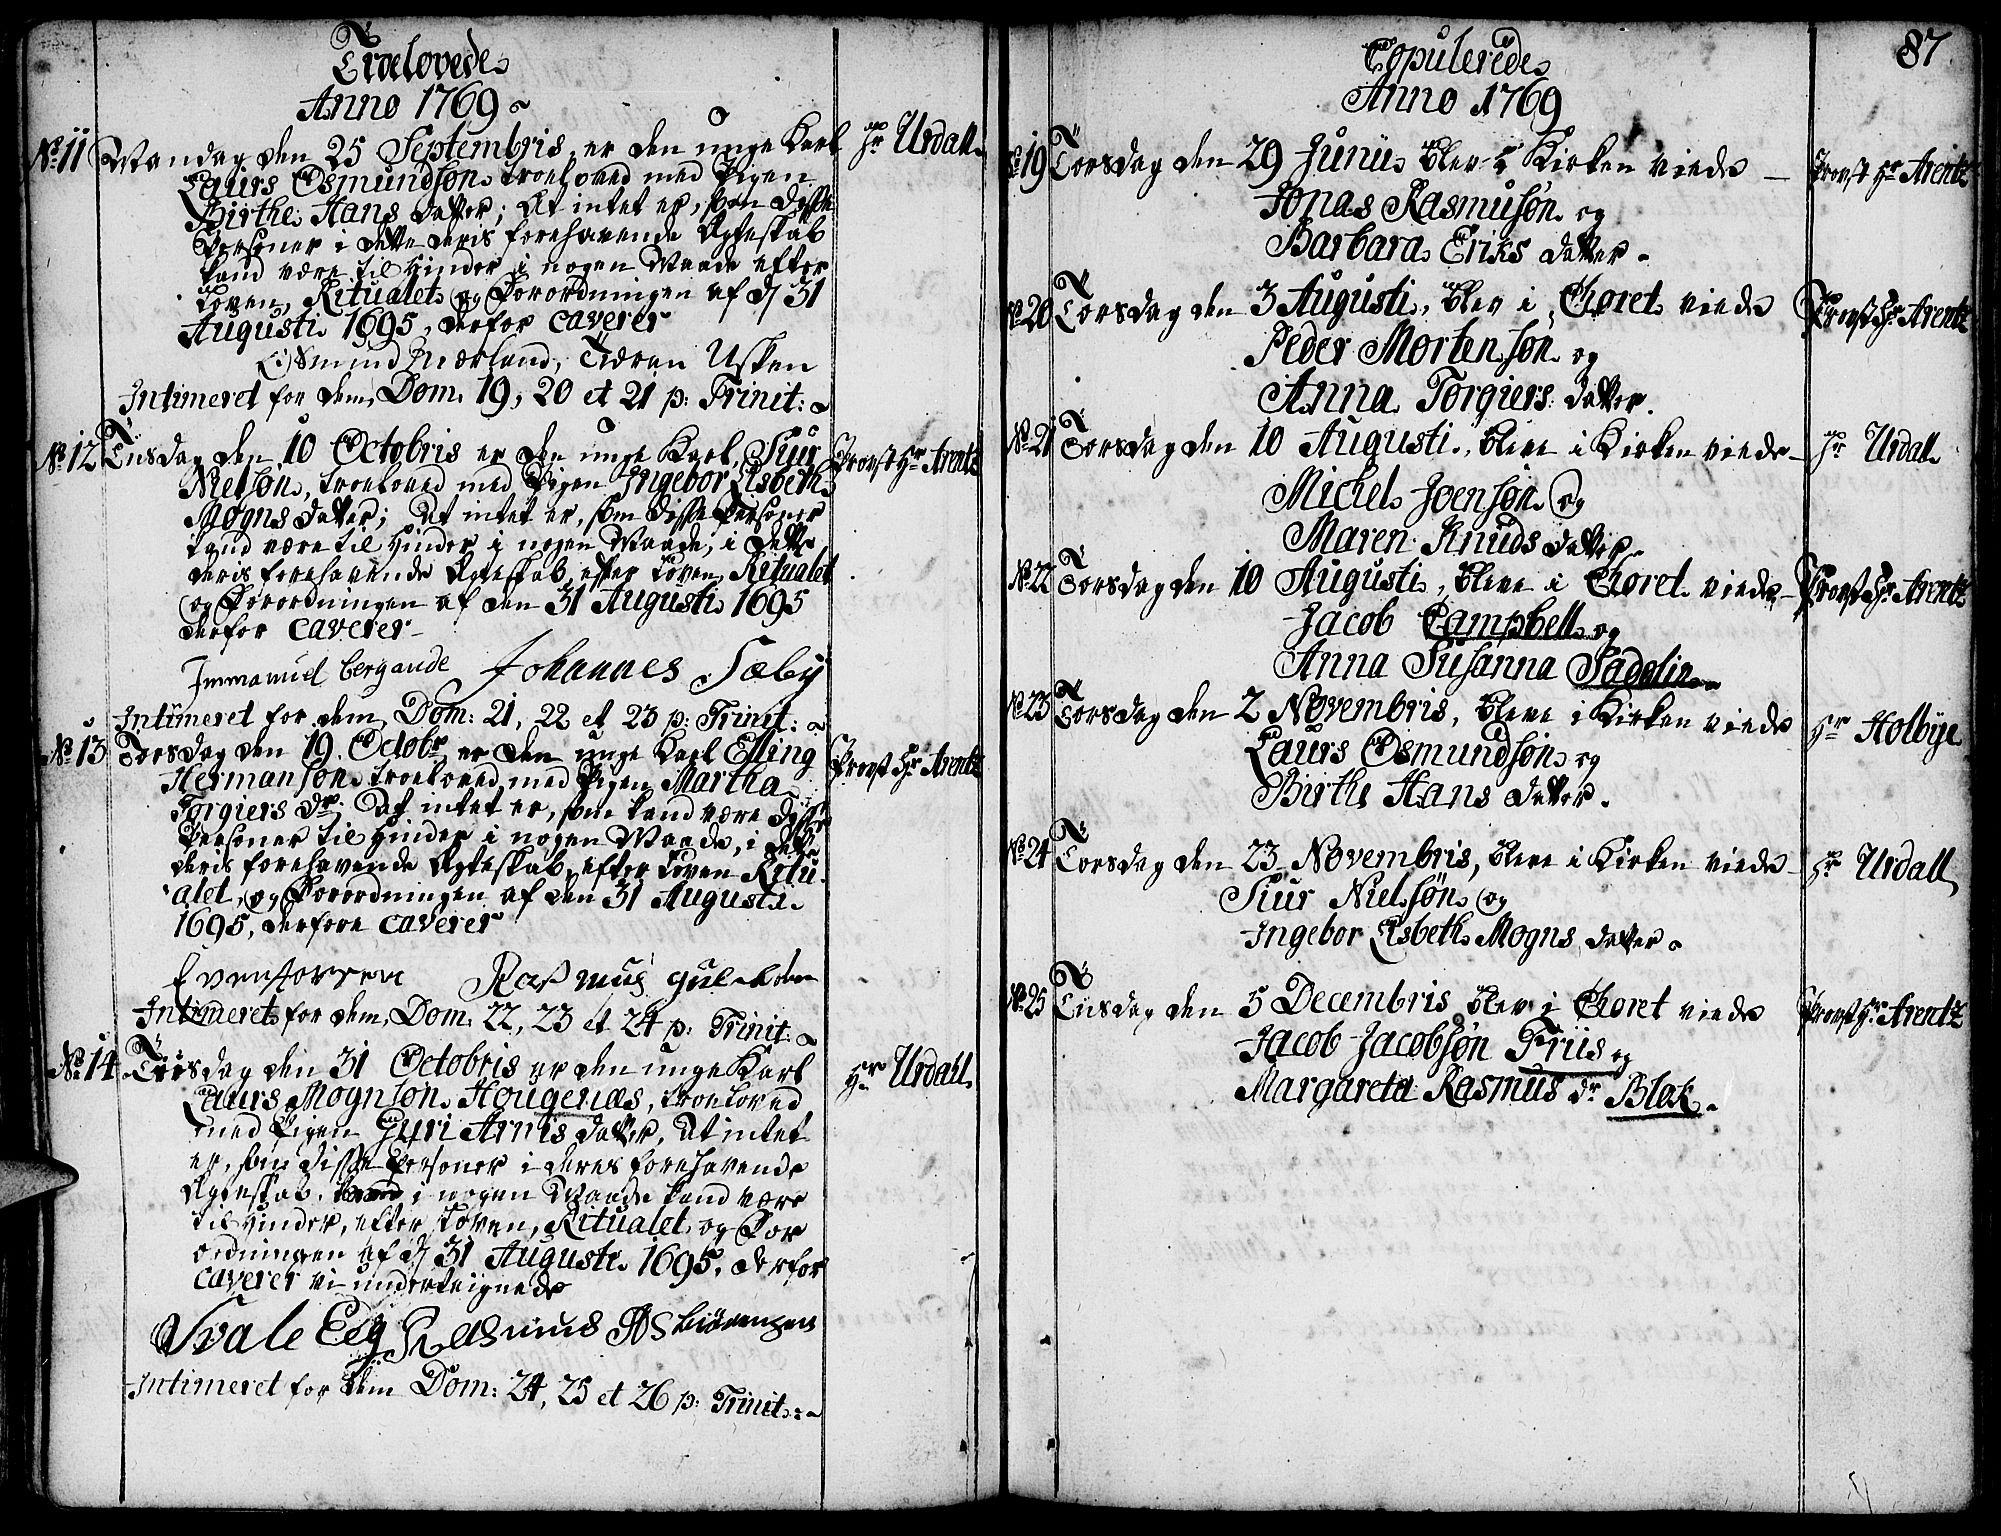 Troelovede
Anno 1769
No 11 Mandag den 25 Septembris, er den unge Karl Hr Urdall
Laurs Osmundsøn troeloved med Pigen
Birthe Hans datter; At intet er, som disse
Personer i dette deris forehavende Ægteskab
kand være til Hinder i nogen Maade efter
Loven, Ritualet og Forordningen af d 31
Augusti 1695, derfor caverer
Osmund Nærland, Tiøran Usken
Intimeret for dem, Dom. 19, 20 et 21 p: Trinit:
No 12 Tiisdag den 10 Octobris er den unge Karl, Siur Provst Hr Arentz
Nielsøn, troeloved med Pigen Ingebor Lisbeth
Mogns datter; At intet er, som disse Personer
kand være til Hinder i nogen Maade, i dette
deris forehavende Ægteskab, efter Loven, Ritualet
og Forordningen af den 31 Augusti 1695
derfor caverer
Immanuel bergande Johannes Sæby
Intimeret for dem, Dom: 21, 22 et 23 p: Trinit:
No 13 Torsdag den 19 Octobr er den unge Karl Elling Provst Hr Arentz
Hermansøn troeloved med Pigen Martha
Torgiers dr. At intet er, som kand være disse
Personer til Hinder i nogen Maade, i dette
deris forehavende Ægteskab, efter Loven Ritu
alet, og Forordningen af den 31 Augusti
1695, derfore caverer
Evenstorsen Rasmus
Intimeret for dem, Dom: 22, 23 et 24 p: Trinit:
No 14 Tiisdag den 31 Octobris er den unge Karl Hr Urdahl
Laurs Mognsøn Hougenæs, troeloved
med Pigen Guri Arnis datter, At intet
er, som disse Personer i deres forehavende
Ægteskab, i nogen Maade kand være
til Hinder, efter Loven, Ritualet og For
ordningen af d 31 Augusti 1695, derfor
caverer vi underteignede
Svale Eeg Rasmus Asbiørensen
Intimeret for dem Dom: 24, 25 et 26 p: Trinit:
87
Copulerede
Anno 1769
No 19 Torsdag den 29 Junii blev i Kirken viede Provst Hr Arentz
Jonas Rasmusøn og
Barbara Eriks datter
No 20 Torsdag den 3 Augusti, blev i Choret viede Provst Hr Arentz
Peder Mortensøn og
Anna Torgiers datter
No 21 Torsdag den 10 Augusti, bleve i Kirken viede Hr Urdall
Michel Joensøn og
Maren Knuds datter
No 22 Torsdag den 10 Augusti, bleve i Choret viede Provst Hr Arentz
Jacob Campbell og
Anna Susanna Sadolin
No 23 Torsdag den 2 Novembris, bleve i Kirken viede Hr Holbye
Laurs Osmundsøn og
Birthe Hans datter
No 24 Torsdag den 23 Novembris, bleve i Kirken viede Hr Urdall
Siur Nielsøn og
Ingebor Lisbeth Mogns datter
No 25 Tiisdag den 5 Decembris blev i Choret viede Provst Hr Arentz
Jacob Jacobsøn Friis og
Margareta Rasmus dr Blok